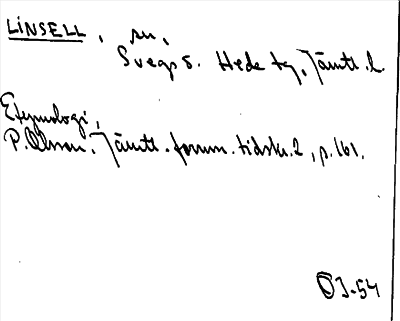 LINSELL, sn,
Svegs s. Hede tg, Jämtl. l.
Etymologi,
P. Olsson. Jämtl. fornm. tidskr. 2, p. 161.
OJ-54